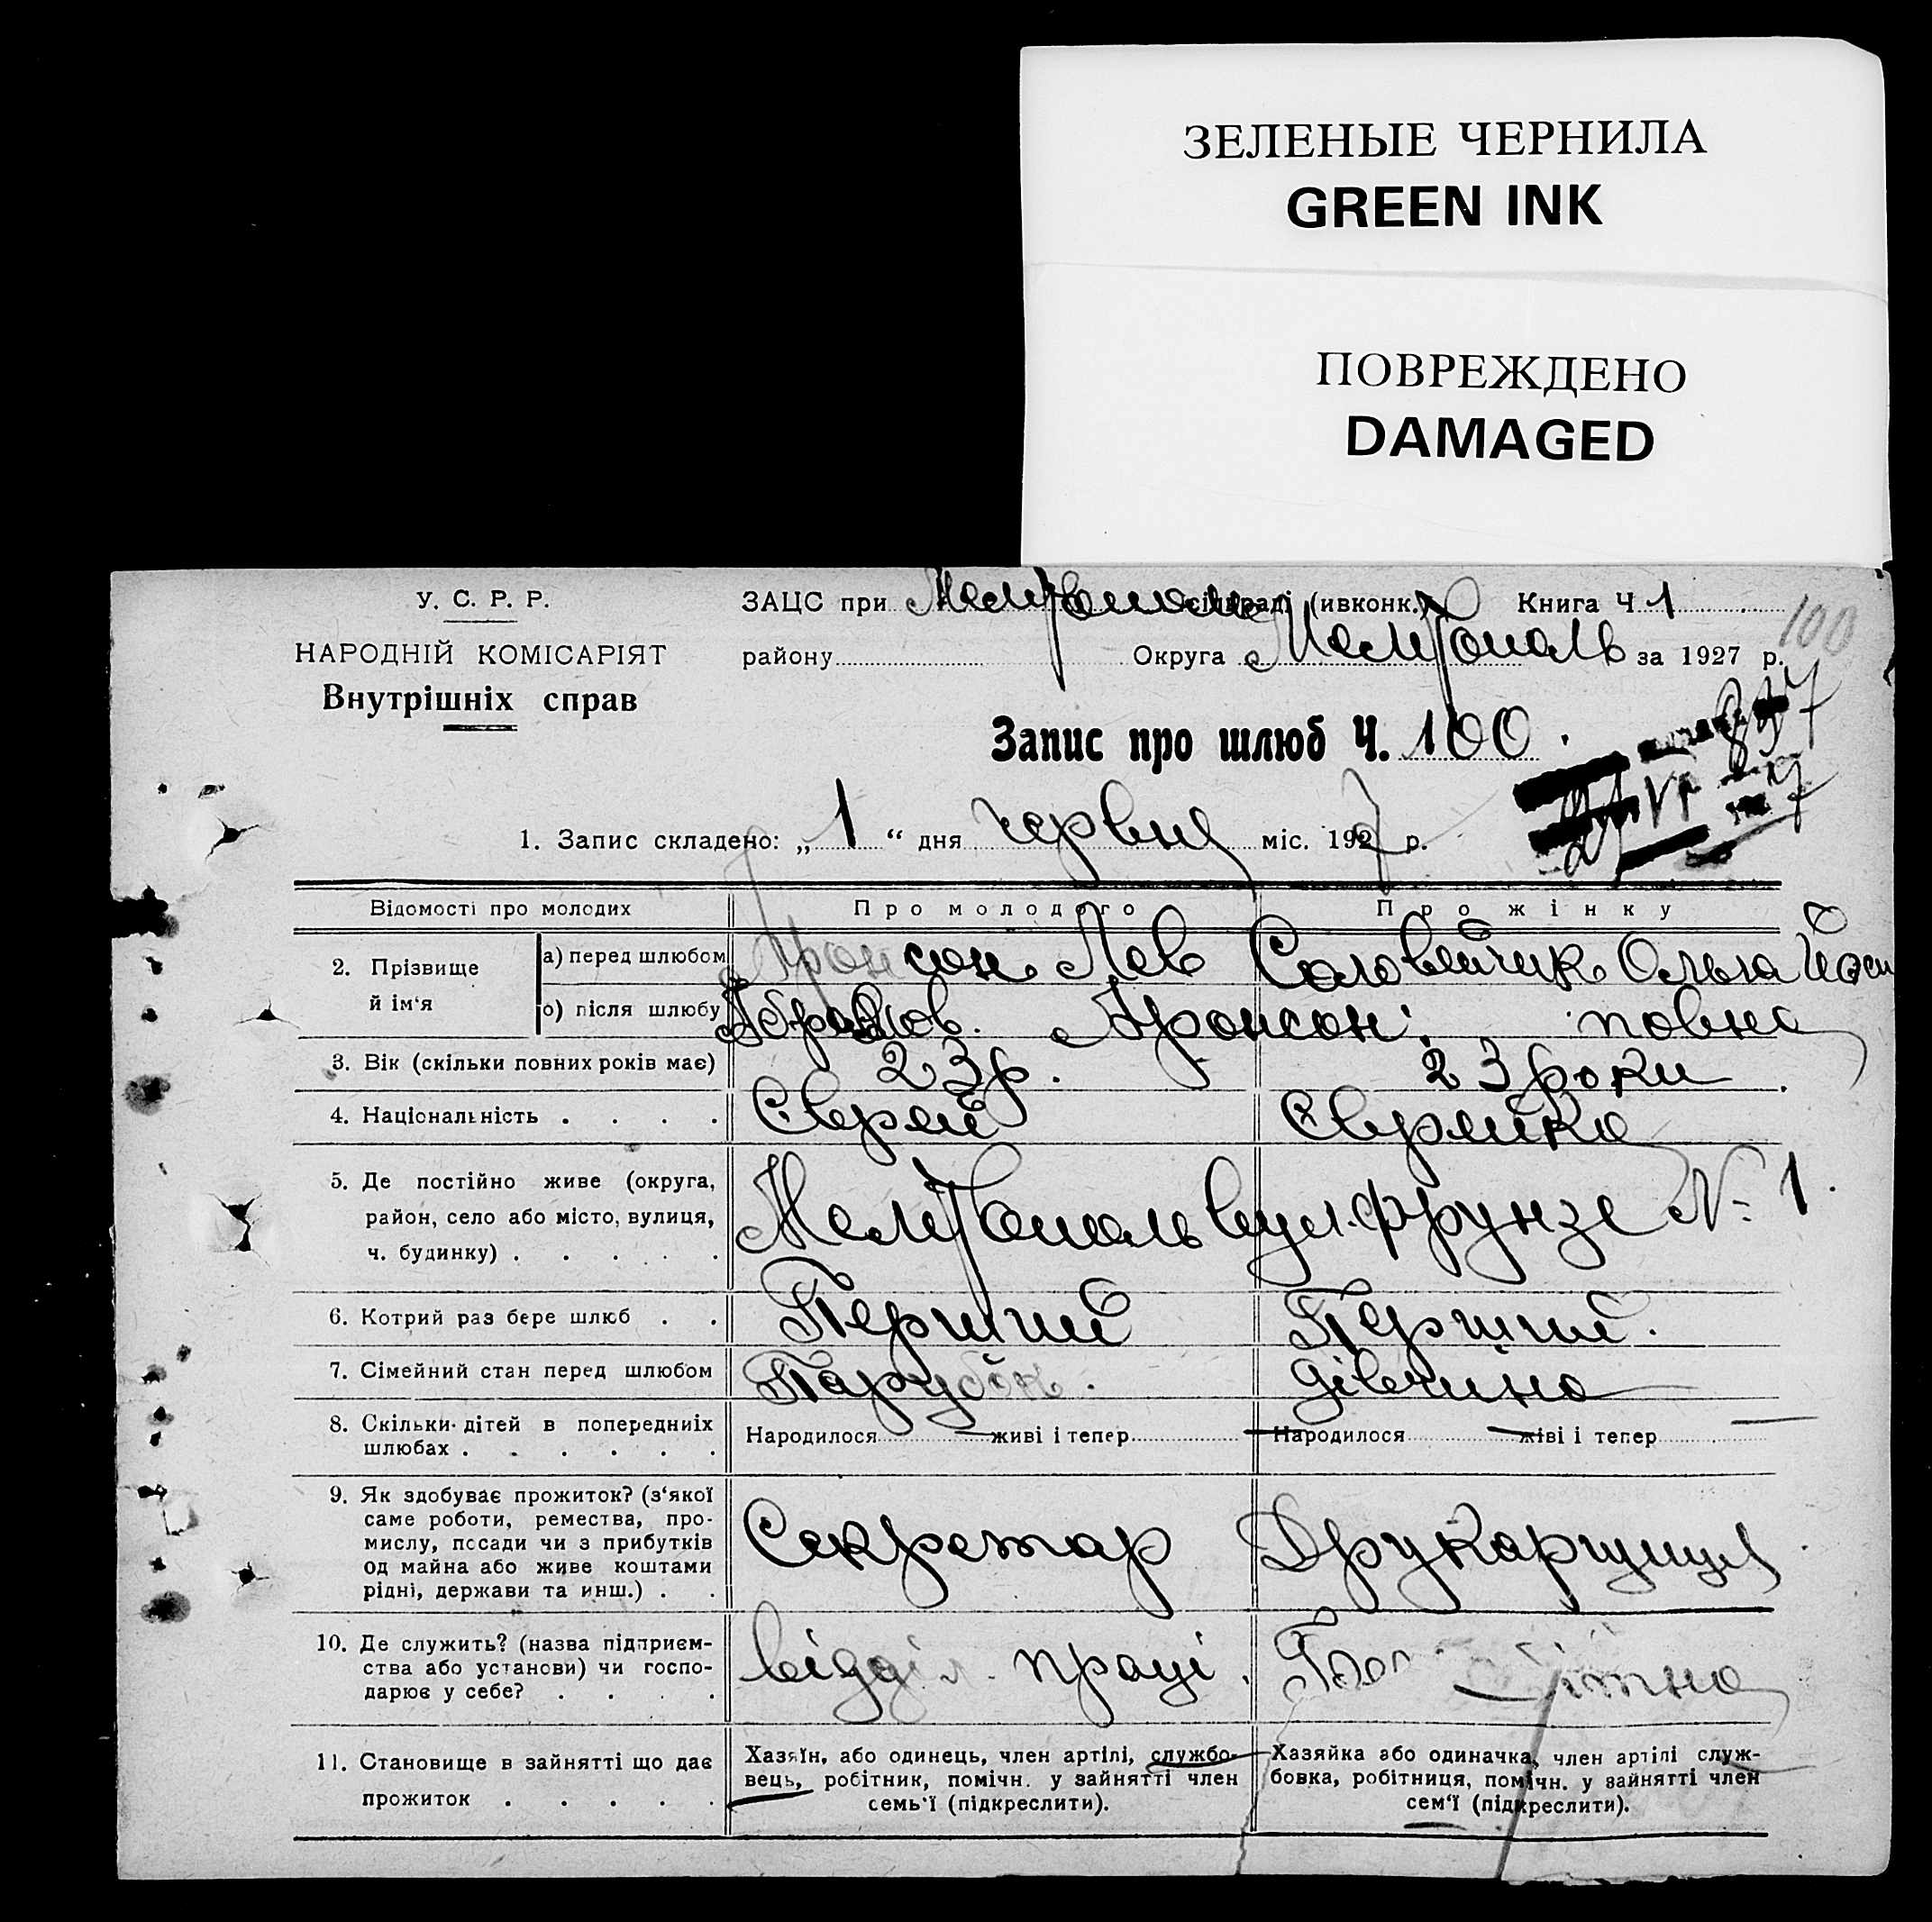 ЗЕЛЕНЫЕ ЧЕРНИЛА
GREEN INK
ПОВРЕЖДЕНО
DAMAGED
У. С. Р. Р.
НАРОДНІЙ КОМІСАРІЯТ
Внутрішніх справ
ЗАЦС при (ивконк.) Книга Ч 1
100
району Округа Мелітополь за 1927 р.
Запис про шлюб Ч. 100.
1. Запис складено: „ 1 “ дня червня міс. 1927 р.
Відомості про молодих
Про молодого
Про жінку
2. Прізвище й ім‘я
а) перед шлюбом
Аронсон Лев
Соловейчик Ольга Йоси
о) після шлюбу
Абрамов. Аронсон. повна
3. Вік (скільки повних років має)
23 р.
23 роки
4. Національність . . . .
Єврей
Єврейка
5. Де постійно живе (округа,
район, село або місто, вулиця,
ч. будинку) . . . . .
Мелітополь вул. Фрунзе № 1.
6. Котрий раз бере шлюб . .
Перший
Перший.
7. Сімейний стан перед шлюбом
Парубок.
дівчина
8. Скільки дітей в попередниіх
шлюбах . . . . . .
Народилося — живі і тепер —
Народилося — живі і тепер —
9. Як здобуває прожиток? (з‘якої
саме роботи, ремества, про-
мислу, посади чи з прибутків
од майна або живе коштами
рідні, держави та инш.) . .
Секретар
Друкарщиця
10. Де служить? (назва підприєм-
ства або установи) чи госпо-
дарює у себе? . . . .
відділ. праці.
11. Становище в зайнятті що дає
прожиток . . . . .
Хазяїн, або одинець, член артілі, службо-
вець, робітник, помічн. у зайнятті член
семь‘ї (підкреслити).
Хазяйка або одиначка, член артілі служ-
бовка, робітниця, помічн. у зайнятті член
сем‘ї (підкреслити).